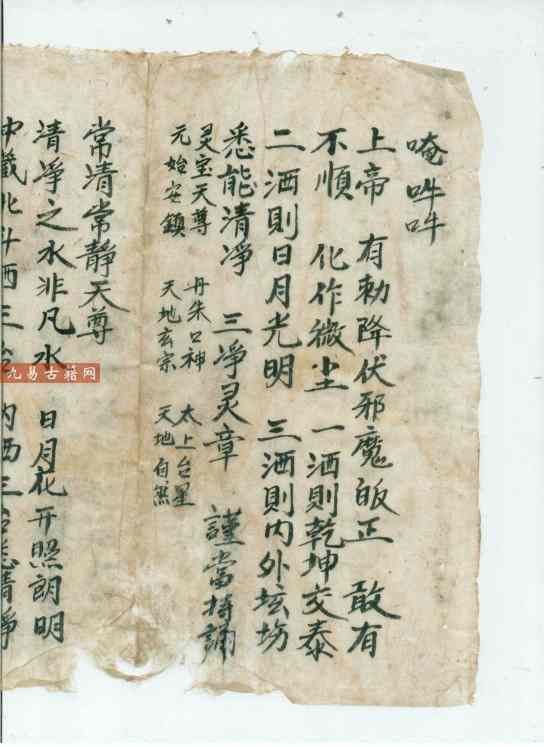 唵吽吽
上帝 有勅降伏邪魔皈正 敢有
不順 化作微尘 一洒則乾坤交泰
二洒則日月光明 三洒則内外坛场
悉能清净 三净灵章 謹當持誦
灵宝天尊 丹朱口神 太上台星
元始安鎮 天地玄宗 天地自然
常清常静天尊
清净之水非凡水 日月花开照朗明
中藏北斗 洒三台 内洒三台悉清净
九易古籍网